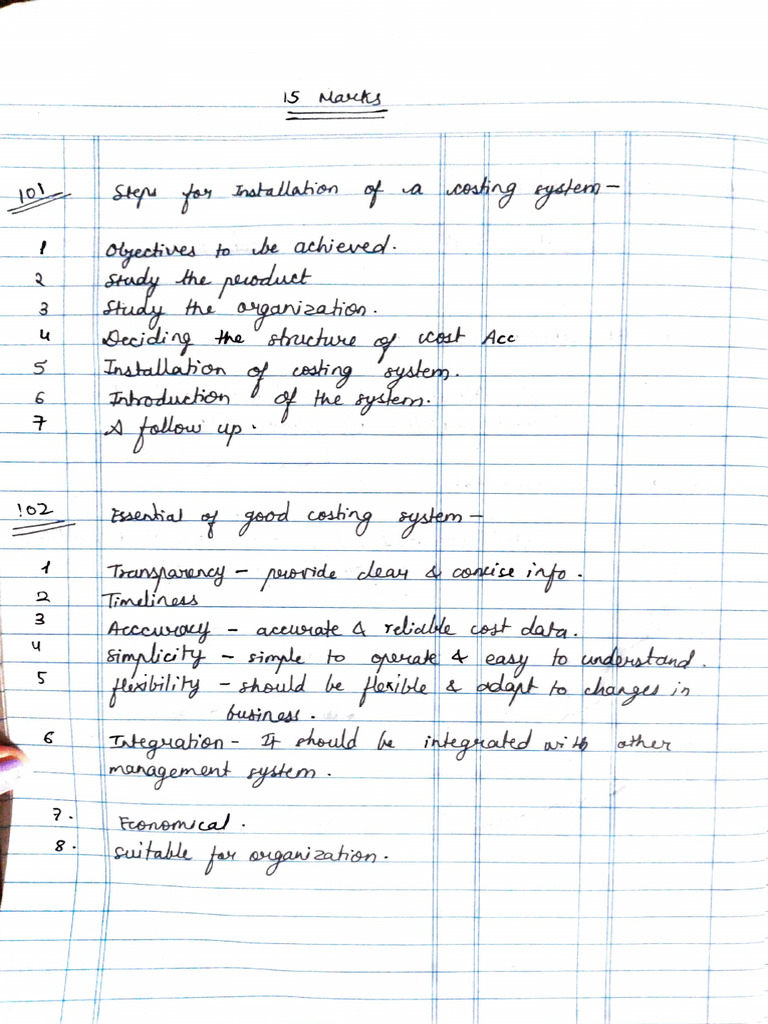 15 Marks
101 Steps for Installation of a costing system -
1 Objectives to be achieved.
2 Study the product
3 Study the organization.
4 Deciding the structure of cost Acc
5 Installation of costing system.
6 Introduction of the system.
7 A follow up.
102 Essential of good costing system -
1 Transparency - provide clear & concise info.
2 Timeliness
3 Acccuracy - accurate & reliable cost data.
4 Simplicity - simple to operate & easy to understand.
5 flexibility - should be flexible & adapt to changes in
business.
6 Integration - It should be integrated with other
management system.
7. Economical.
8. Suitable for organization.